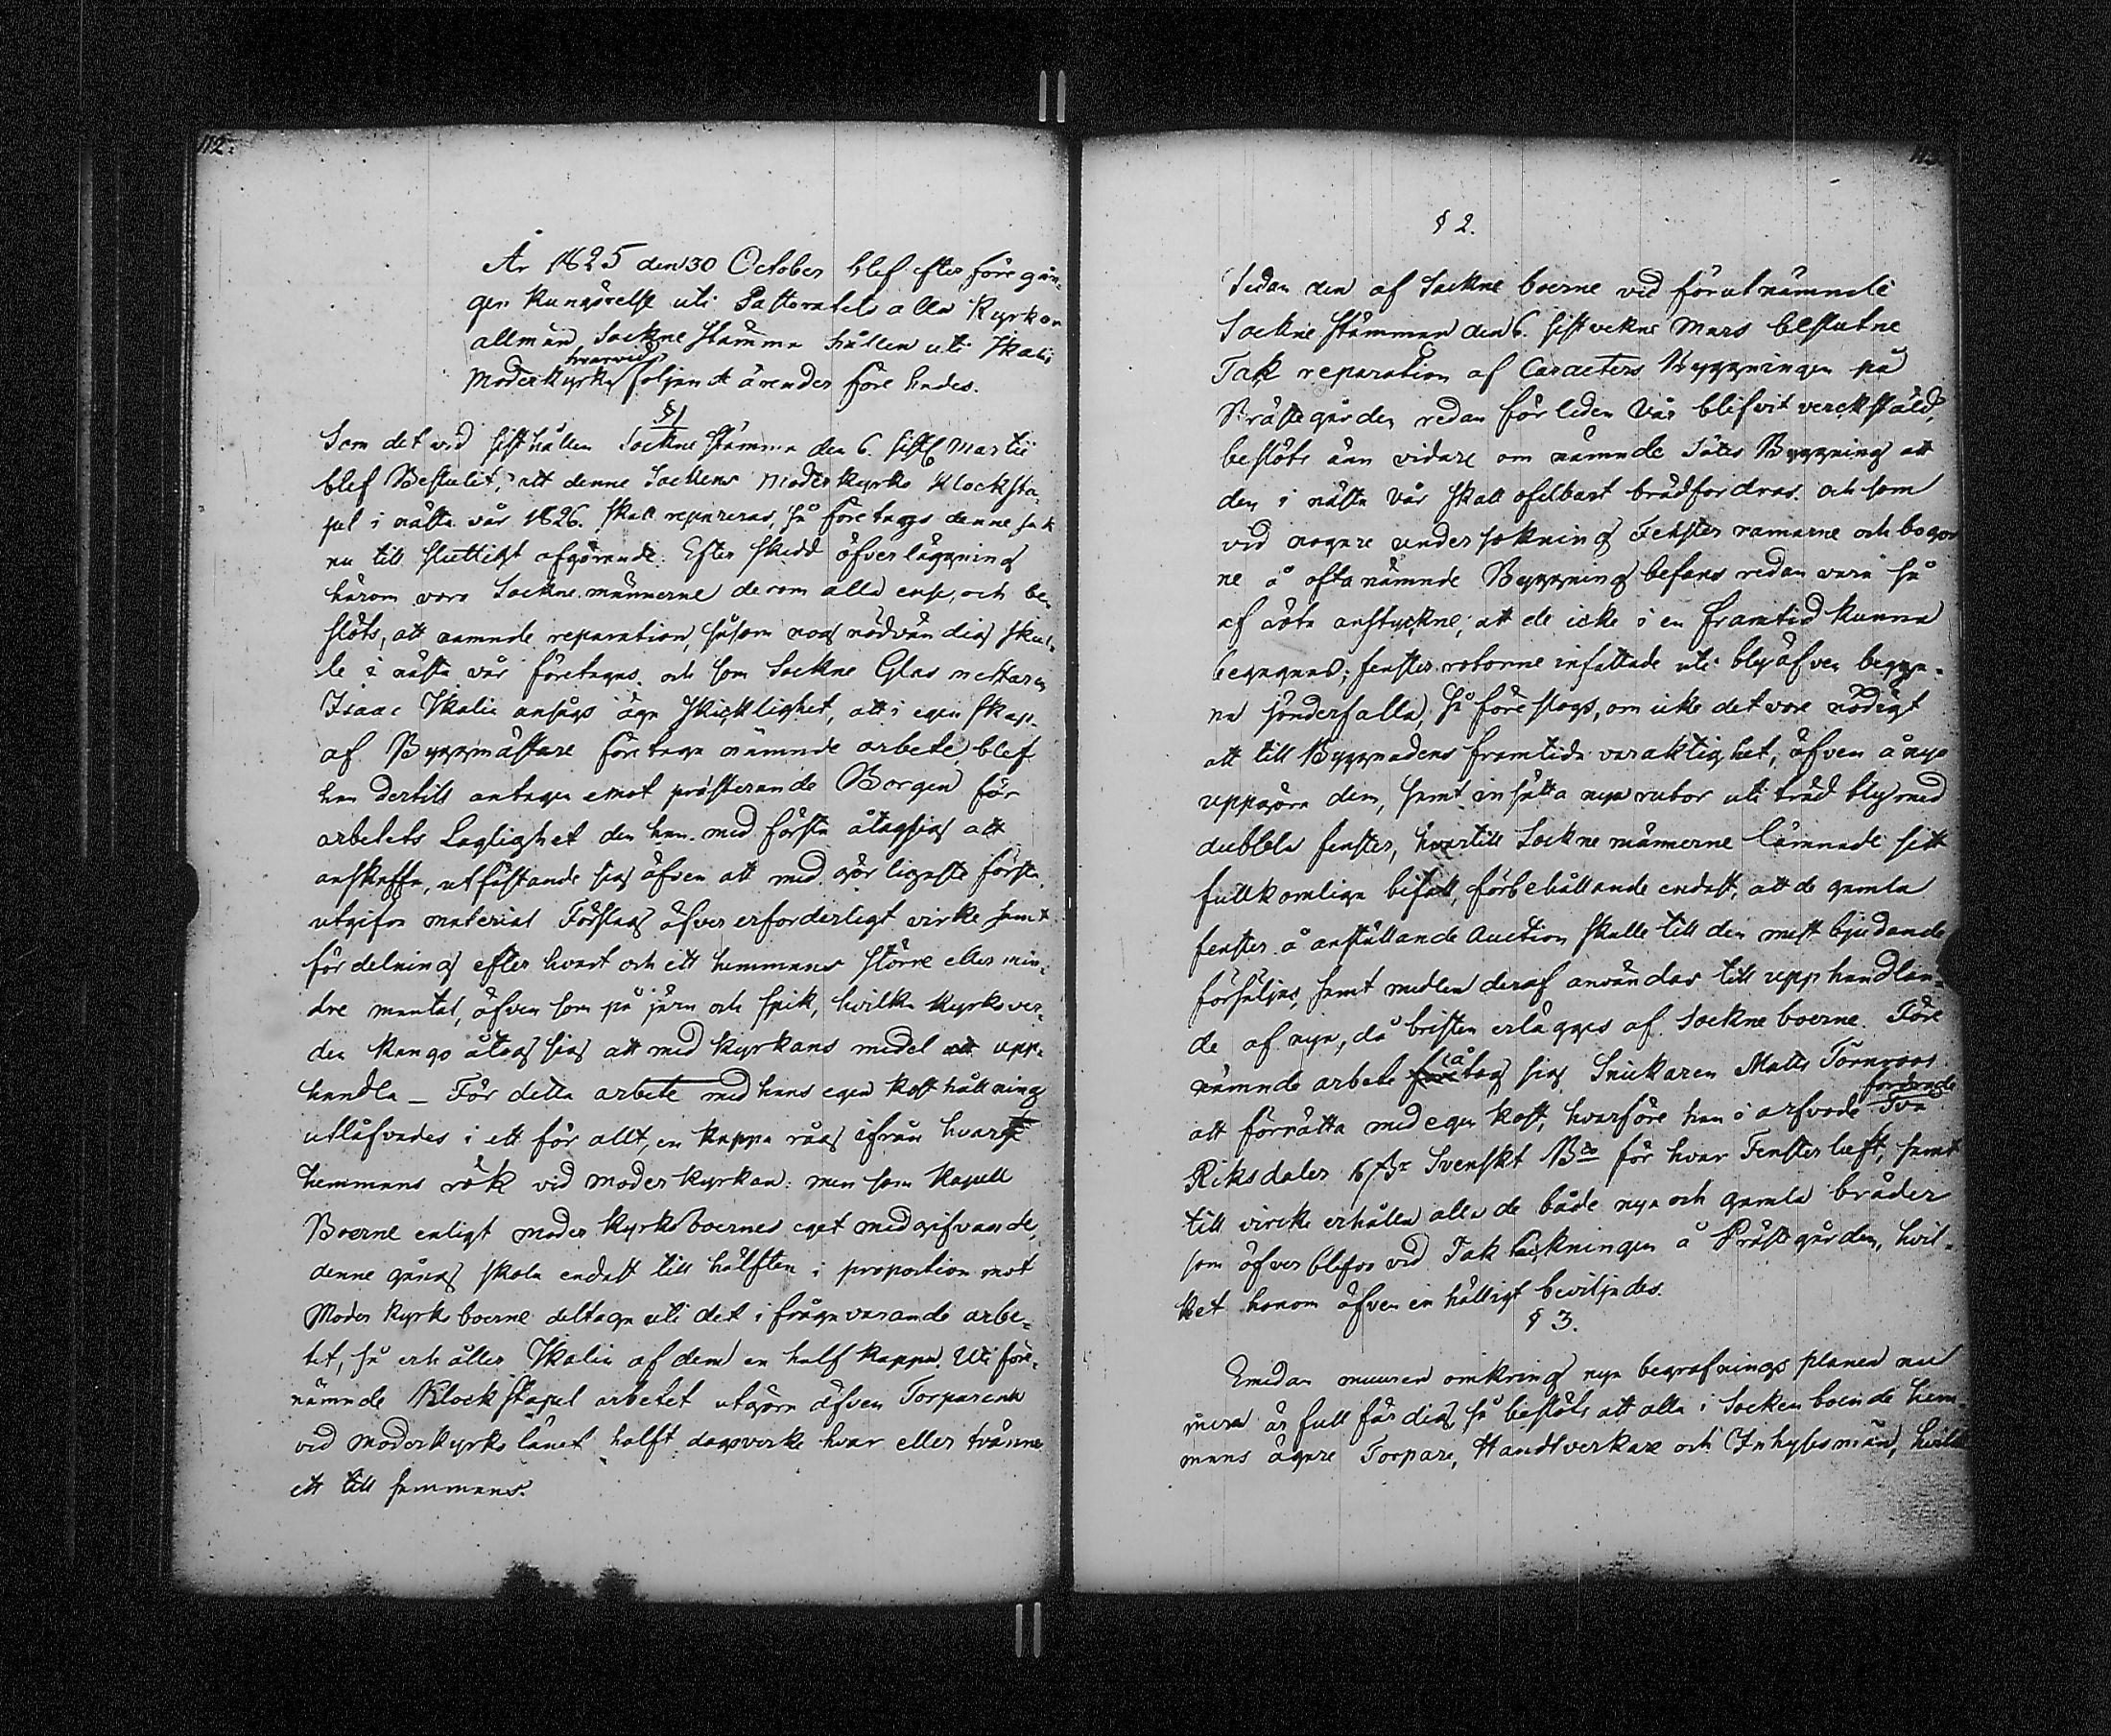 112.
År 1825 den 30 October blef efter före gån-
gen kungörelse uti Pastoratets alla Kyrkor
allmän Sockne stämma hållen uti Skalis
hvarvid
Moderkyrka följande ärender före hades.
§ 1
Som det vid sist hållen Sockne stämma den 6. sistl Martii
blef Beslutit, att denne Sockens Moderkyrko Klocksta-
pel i nästa vår 1826. skall repareras, så företogs denne sak
nu till sluttligt afgörande. Efter skedd öfverläggning
härom voro Sockne männerne derom alla ense, och be-
slöts, att nämnde reparation, såsom nog nödvändig skul-
le i nästa vår företagas. och som Sockne Glas mestaren
Isaac Skalin ansågs äga skicklighet, att i egenskap
af Byggmästare företaga nämnde arbete, blef
han dertill antagen emot præsterande Borgen för
arbetets Laglighet den han med första åtagsig att
anskaffa, utfästande sig äfven att med görligaste första
utgifva material Förslag öfver erforderligt virke samt
fördelning efter hvart och ett hemmans större eller min-
dre mantal, äfven som på järn och spik, hvilka Kyrkover-
den Kango åtog sig att med Kyrkans medel upp-
handla _ För detta arbete med hans egen kost hållning
utlåfvades i ett för allt, en kappa råg ifrån hvart
hemmans rök vid moderkyrkan: men som Kapell
Boerne enligt moder kyrkoboernes eget medgifvande,
denne gång skola endast till hälften i proportion mot
Moder kyrko boerne deltaga uti det i fråga varande arbe-
tet, så erhåller Skalin af dem en half kappa. Uti före-
nämnde Klockstapel arbetet utgöra äfven Torparena
vid moderkyrko länet halft dagsverke hvar eller tvänne
ett till sammans.
§ 2.
Sedan den af Sockne boerne vid förutnämnde
Sockne stämman den 6. sistvekne Mars beslutne
Tak reparation af Caracters Byggningen på
Prästegården redan förleden vår blifvit verckstäld,
beslöts än vidare om nämnde Sätes Byggning att
den i nästa vår skall ofelbart brädfordras. och som
vid nogare undersökning Fenster ramarne och bogar
ne å ofta nämnde Byggning befans redan vara så
af röta anstuckne; att de icke i en framtid kunna
begagnas; fenster rutorne infattade uti bly äfven begyn-
na sönderfalla, så före slogs, om icke det vore nödigt
att till Byggnadens framtida varaktighet, äfven å nyo
uppgöra dem, samt insätta nya rutor uti tråd bly med
dubbla fenster, hvartill Sockne männerne lämnade sitt
fullkomliga bifall, förbehållande endast, att de gamla
fenster å anställande Auction skulle till den mest bjudande
försäljas, samt medlen deraf användas till upphandlan-
de af nya, då bristen erlägges af Sockneboerne. Före
nämnde arbete åtog sig Snickaren Matts Törnroos
fordrande
att förrätta med egen kost, hvarföre han i arfvode Två
Riksdaler 16 s:r Svenskt B:co för hvar Fensterluft, samt
till vircke erhålla alla de både nya och gamla bräder
som öfver blefvo vid Tak läckningen å Prästegården, hvil-
ket honom äfven enhälligt beviljades.
§ 3.
Emedan muuren omkring nya begrafnings planen nu
mera är fullfärdig, så beslöts att alla i Socken boende hem-
mans ägare Torpare, Handtverkare och Inhyses män, hvilka